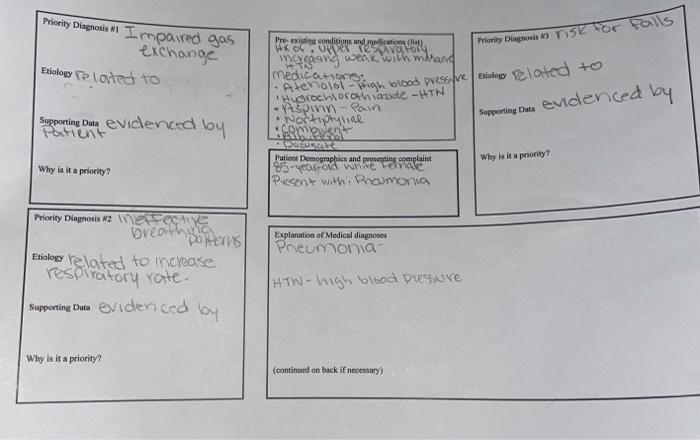 Priority Diagnosis #1 Impaired gas
exchange
Etiology related to
Supporting Data evidenced by
Patient
Why is it a priority?
Pre-existing conditions and medications (list)
HX of: upper respiratory,
increasing weak with
HTN
medications:
• Atenolol - High blood pressure
• Hydrochlorothiazide - HTN
• Aspirin - Pain
• Nortiphyline
• Combivent
• Albuterol
• Docusate
Patient Demographics and presenting complaint
85-year-old white Female
Present with: Pneumonia
Priority Diagnosis #3 risk for falls
Etiology related to
Supporting Data evidenced by
Why is it a priority?
Priority Diagnosis #2 Ineffective
breathing
patterns
Etiology related to increase
respiratory rate.
Supporting Data evidenced by
Why is it a priority?
Explanation of Medical diagnoses
Pneumonia-
HTN - high blood pressure
(continued on back if necessary)